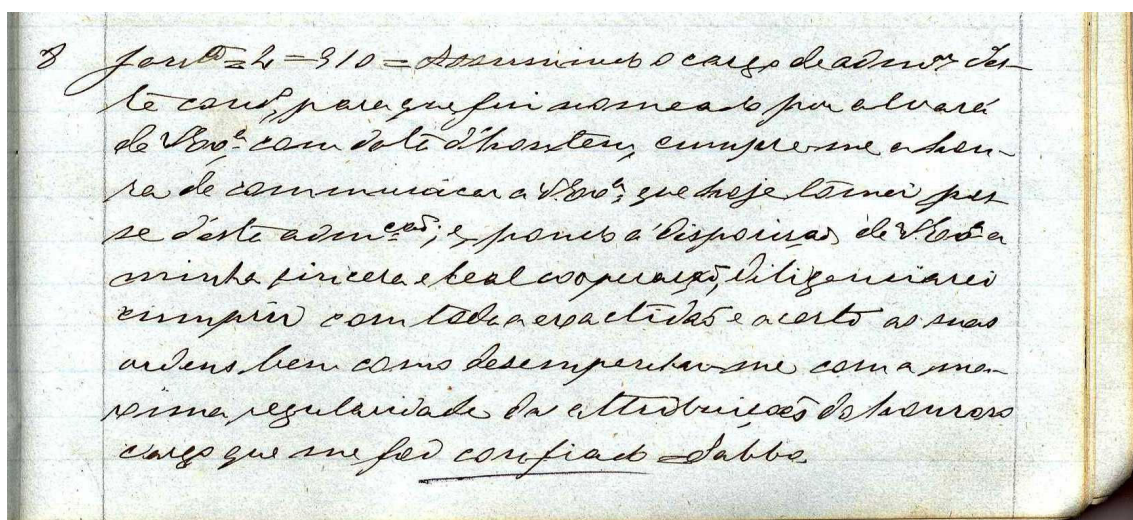 8 Jan.º = 2 = 910 = Assumindo o cargo de adm.or des-
te conc.º, para que fui nomeado por alvará
de V. Ex.ª com data d'hontem, cumpre-me a hon-
ra de communicar a V. Ex.ª que hoje tomei pos-
se d'esta adm.cão; e, pondo á disposição de V. Ex.ª a
minha sincera e leal cooperação, diligenciarei
cumprir com toda a exactidão e acerto as suas
ordens bem como desempenhar-me com a ma-
xima regularidade das attribuições do honroso
cargo que me foi confiado =